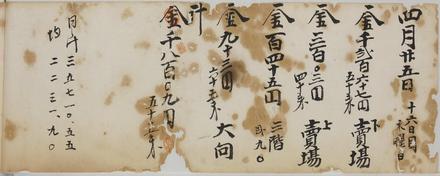 四月廿五日 十六日目 木曜日
金千弐百六十七円五十銭 下賣場
金三百〇三円四十銭 上賣場
金百四十五円 三階 弐九〇
金九十三円六十五銭 大向
計
金千八百〇九円五十五銭
日計 三五七一〇、五五
均 二二三一、九〇